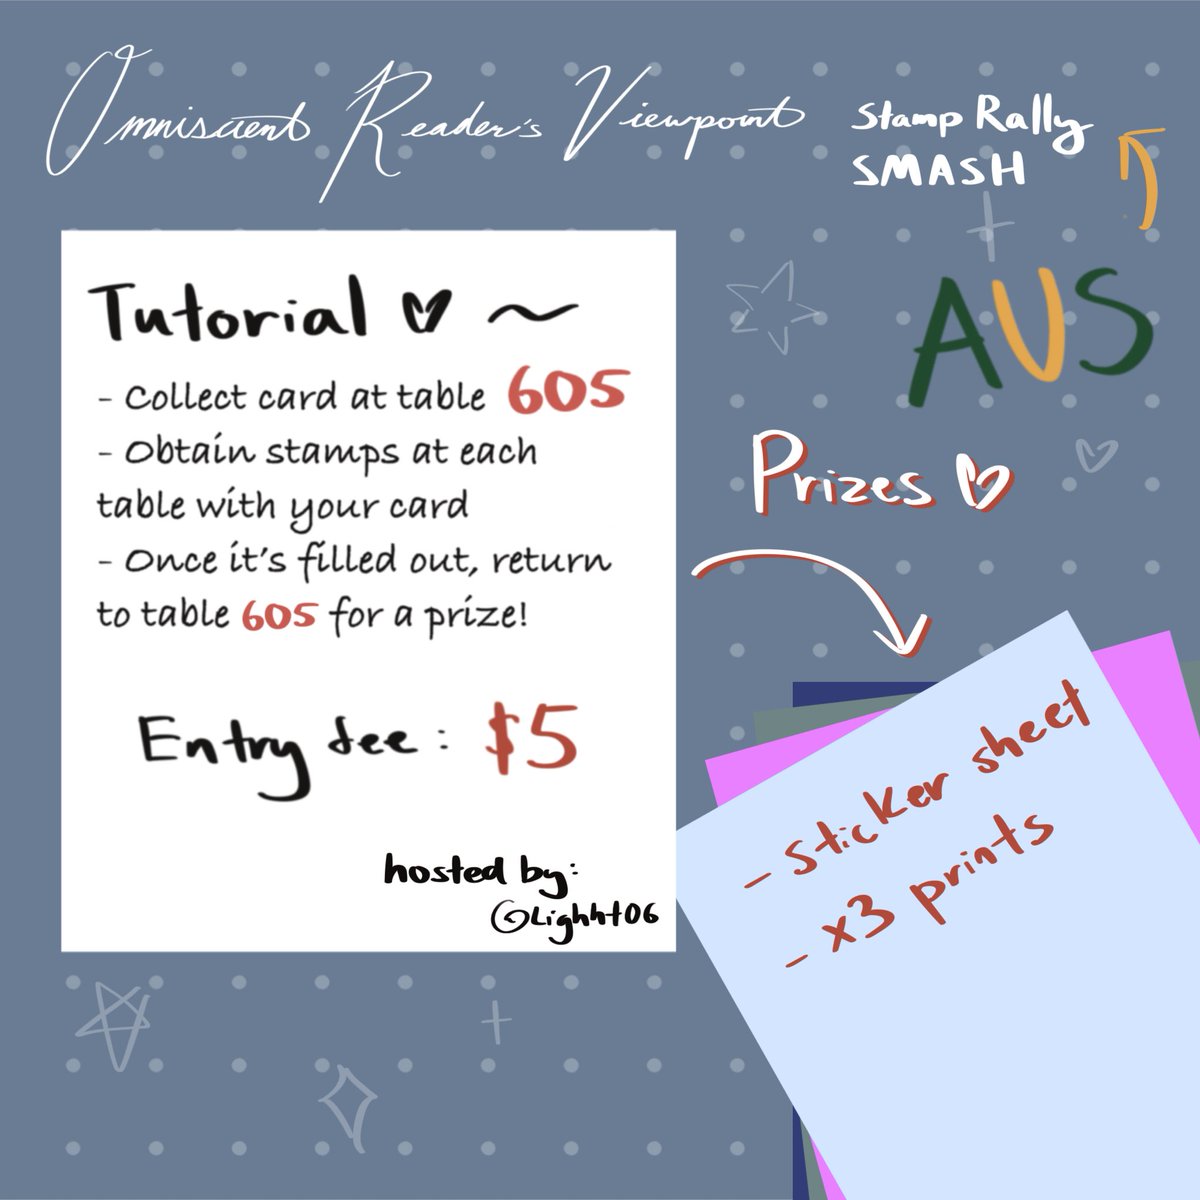 Omniscient Reader's Viewpoint
Stamp Rally
SMASH
AUS
Tutorial ~
- Collect card at table 605
- Obtain stamps at each
table with your card
- Once it's filled out, return
to table 605 for a prize!
Entry fee: $5
hosted by:
@Lighht06
Prizes
- sticker sheet
- x3 prints